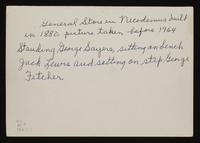 General Store in Nicodemus built
in 1880 picture taken before 1964
Standing George Sayers, sitting on bench
Jack Lewis and sitting on step George
Fletcher.